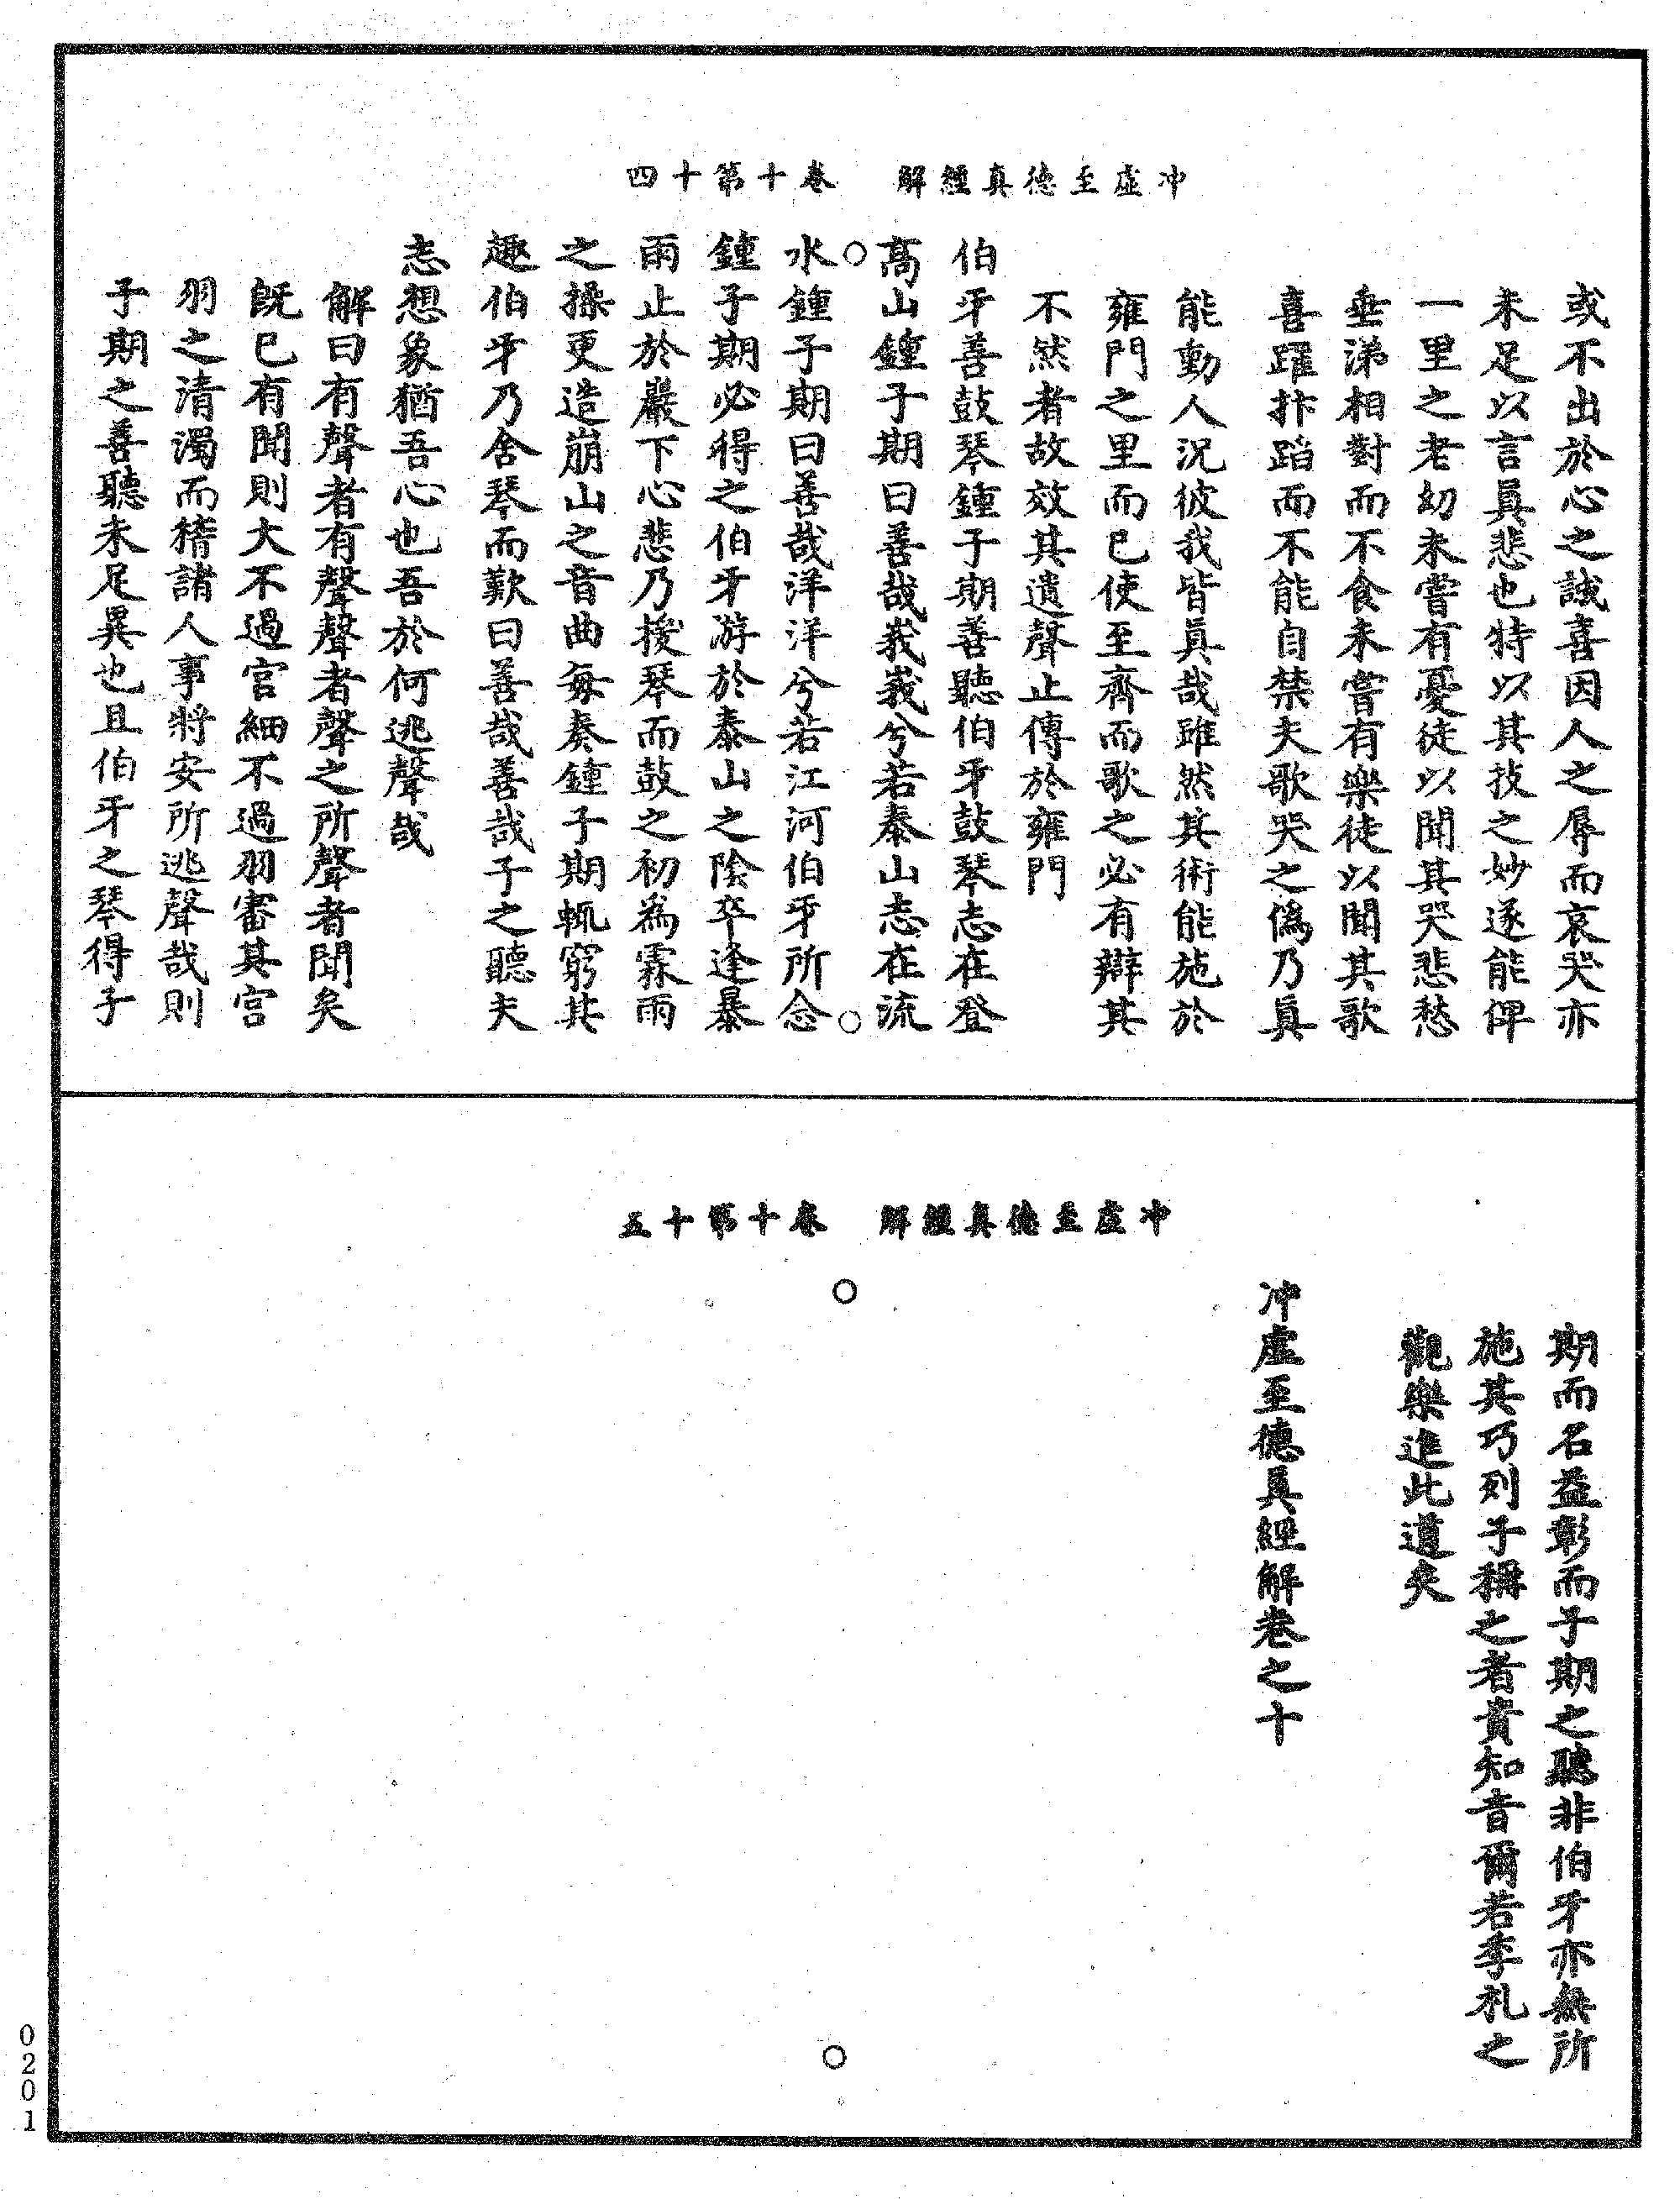 冲虛至德真經解　卷十第十四
或不出於心之誠喜因人之辱而哀哭亦
未足以言眞悲也特以其技之妙遂能俾
一里之老幼未嘗有憂徒以聞其哭悲愁
垂涕相對而不食未嘗有樂徒以聞其歌
喜躍抃蹈而不能自禁夫歌哭之僞乃眞
能動人況彼我皆眞哉雖然其術能施於
雍門之里而已使至齊而歌之必有辯其
不然者故效其遺聲止傳於雍門
伯牙善鼓琴鍾子期善聽伯牙鼓琴志在登
高山鍾子期曰善哉峩峩兮若泰山志在流
水鍾子期曰善哉洋洋兮若江河伯牙所念
鍾子期必得之伯牙游於泰山之陰卒逢暴
雨止於巖下心悲乃援琴而鼓之初為霖雨
之操更造崩山之音曲每奏鍾子期輒窮其
趣伯牙乃舍琴而歎曰善哉善哉子之聽夫
志想象猶吾心也吾於何逃聲哉
解曰有聲者有聲聲者聲之所聲者聞矣
旣已有聞則大不過宮細不過羽審其宮
羽之清濁而稽諸人事將安所逃聲哉則
子期之善聽未足異也且伯牙之琴得子
冲虛至德真經解　卷十第十五
期而名益彰而子期之聽非伯牙亦無所
施其巧列子稱之者貴知音爾若季札之
觀樂進此道矣
冲虛至德眞經解卷之十
0201